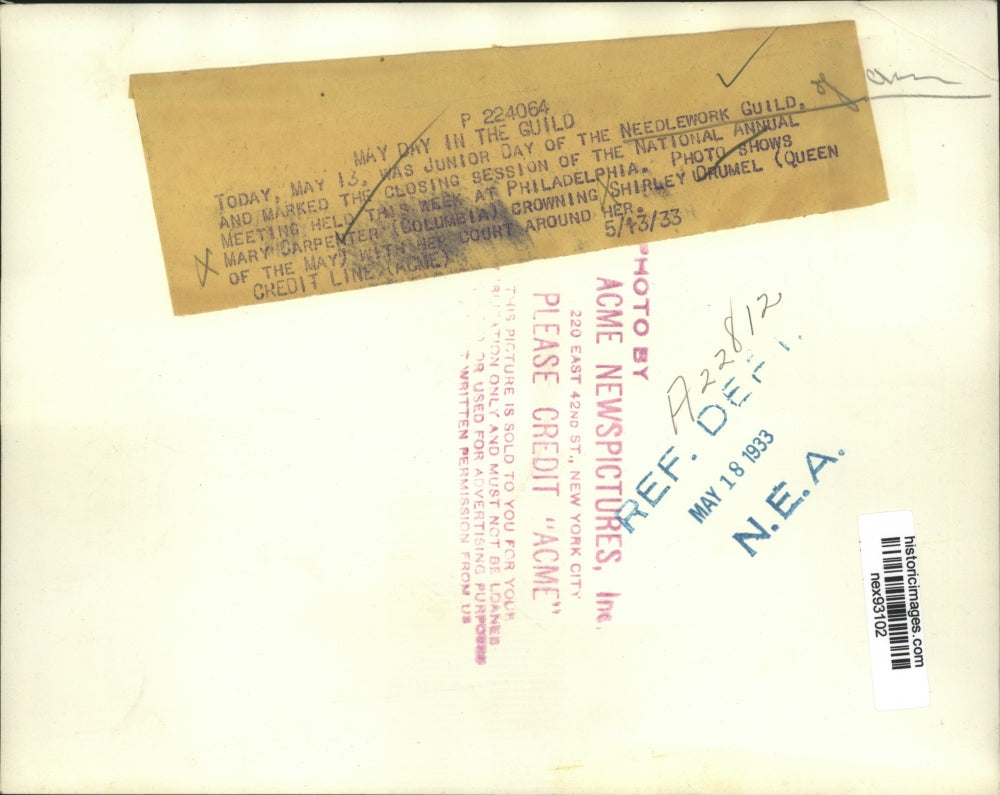 P 224064
MAY DAY IN THE GUILD
TODAY, MAY 13, WAS JUNIOR DAY OF THE NEEDLEWORK GUILD.
AND MARKED THE CLOSING SESSION OF THE NATIONAL ANNUAL
MEETING HELD THIS WEEK AT PHILADELPHIA. PHOTO SHOWS
MARY CARPENTER (COLUMBIA) CROWNING SHIRLEY DRUMEL (QUEEN
OF THE MAY) WITH HER COURT AROUND HER.
CREDIT LINE (ACME) 5/13/33
PHOTO BY
ACME NEWSPICTURES, Inc.
220 EAST 42ND ST., NEW YORK CITY
PLEASE CREDIT "ACME"
THIS PICTURE IS SOLD TO YOU FOR YOUR
ONLY AND MUST NOT BE LOANED
OR USED FOR ADVERTISING PURPOSES
WRITTEN PERMISSION FROM US
A22812
REF. DEPT.
MAY 18 1933
N.E.A.
historicimages.com
nex93102